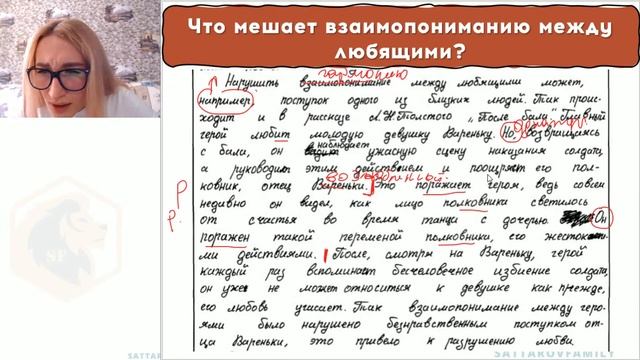 Что мешает взаимопониманию между
любящими?
гармонию
Нарушить взаимопонимание между любящими может,
например, поступок одного из близких людей. Так проис-
ходит и в рассказе Л.Н.Толстого „После бала“. Главный
герой любит молодую девушку Вареньку. Но, возвращаясь
с бала, он наблюдает ужасную сцену наказания солдата,
а руководит этим действием и поощряет его пол-
ковник, отец Вареньки. Это поражает героя, ведь совсем
недавно он видел, как лицо полковника светилось
от счастья во время танца с дочерью. Он
поражен такой переменой полковника, его жесток
ми действиями. После, смотря на Вареньку, герой
каждый раз вспоминает бесчеловечное избиение солдата,
он уже не может относиться к девушке как прежде,
его любовь угасает. Так взаимопонимание между геро-
ями было нарушено безнравственным поступком от-
ца Вареньки, это привело к разрушению любви.
Р
Р.
SF
SATTAROVFAMILY